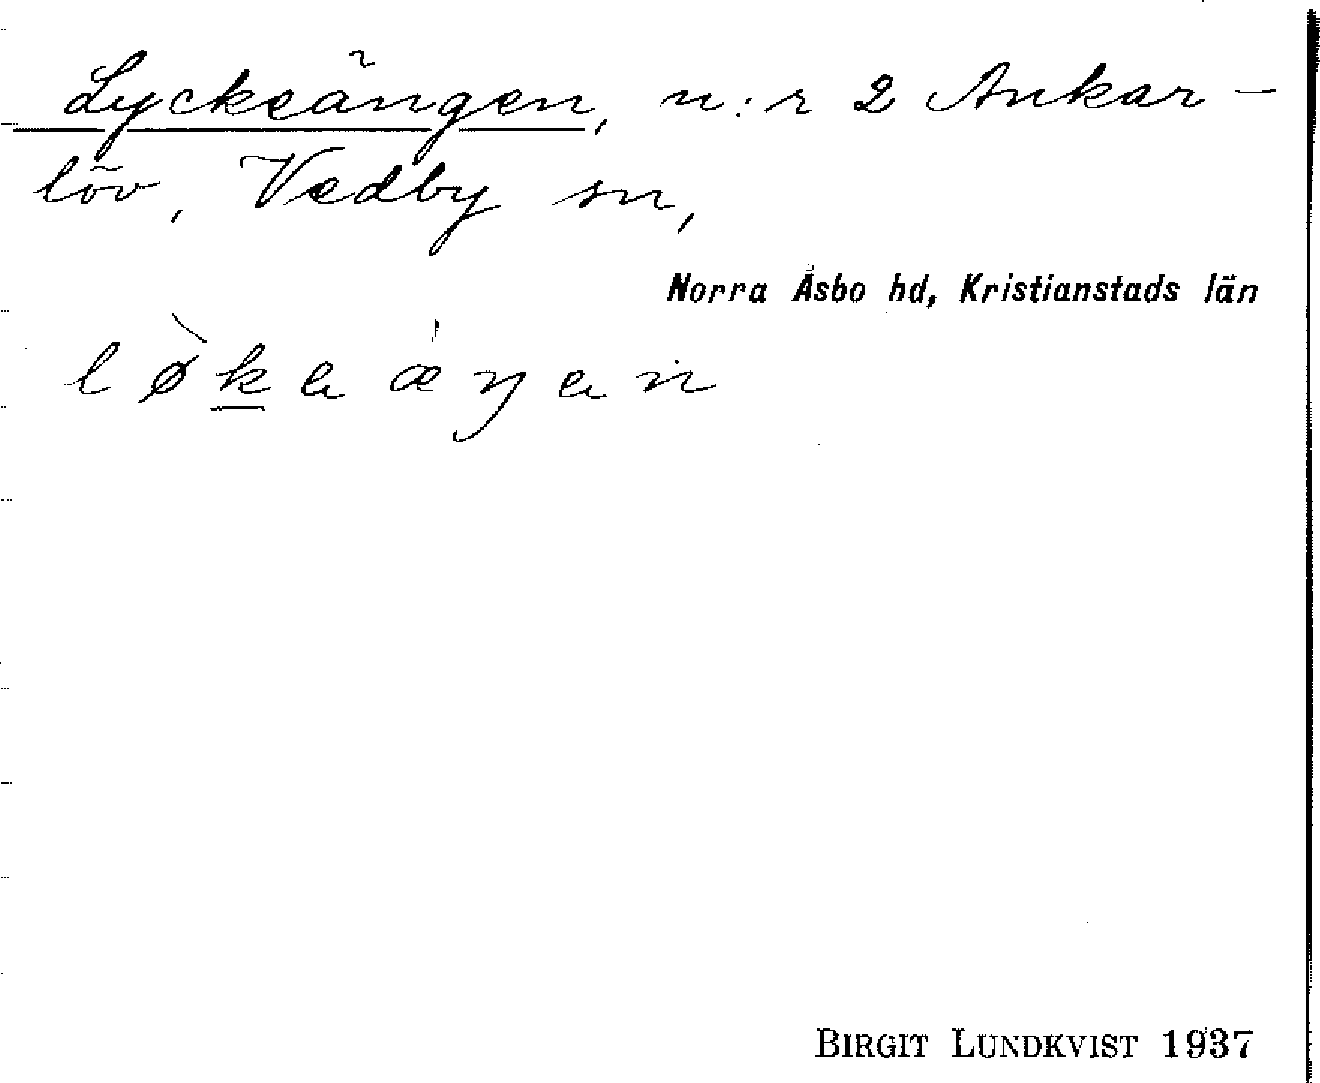 Lyckeängen, n:r 2 Ankar-
löv, Vedby sn,
Norra Åsbo hd, Kristianstads län
lø̀kaæŋan
BIRGIT LUNDKVIST 1937